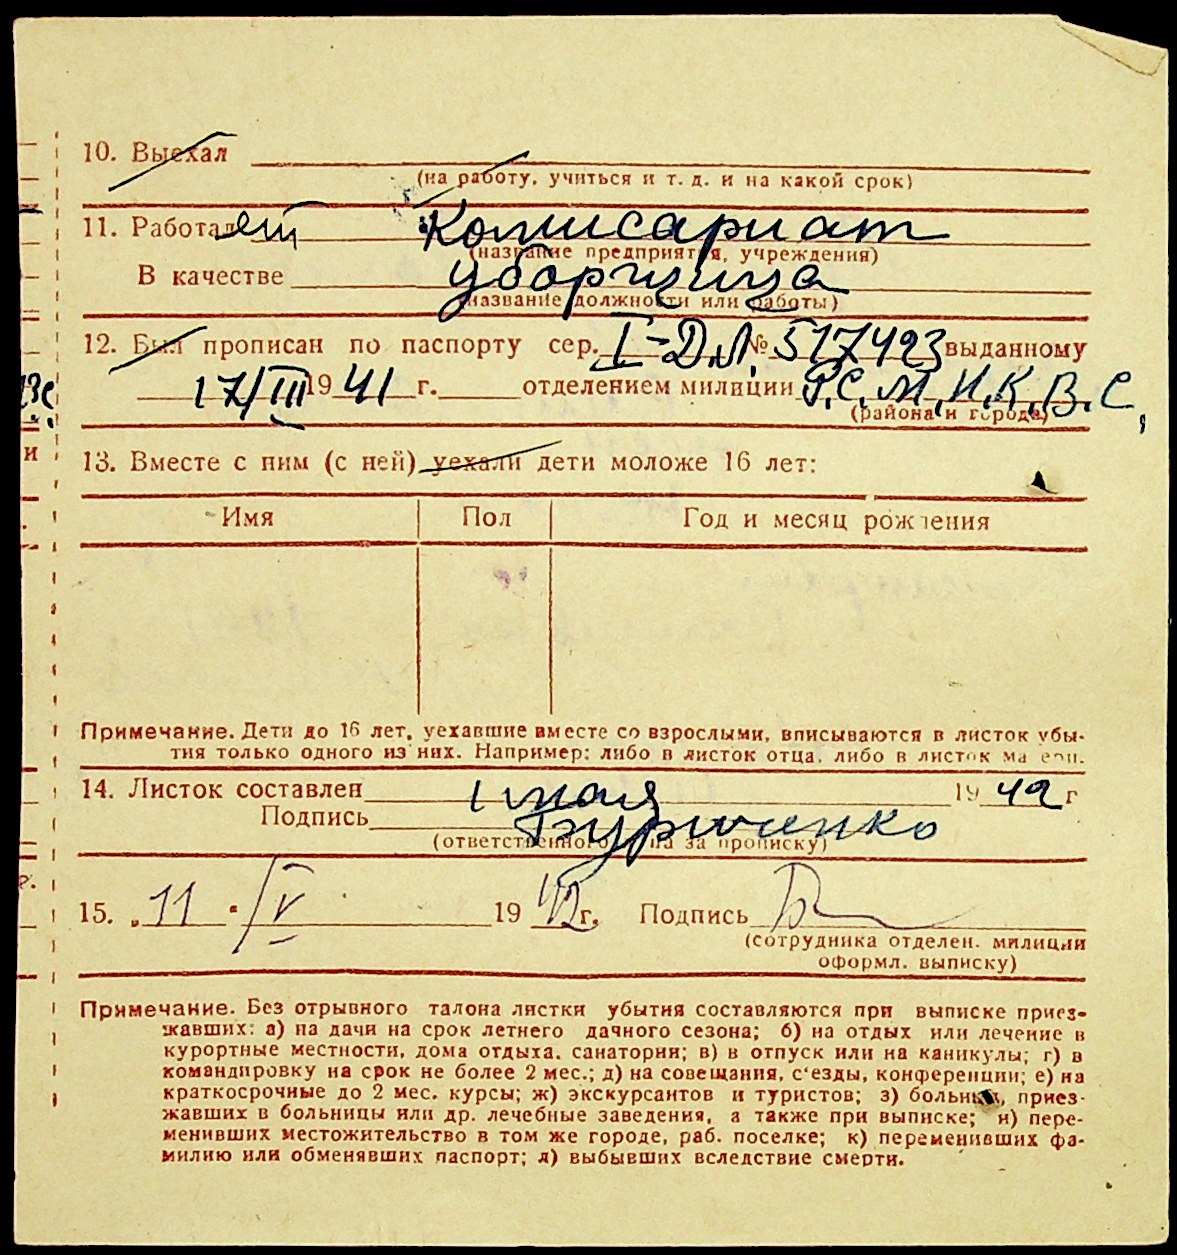 10. Выехал
(на работу, учиться и т. д. и на какой срок)
11. Работает Комисариат
(название предприятия, учреждения)
В качестве уборщица
(название должности или работы)
12. Был прописан по паспорту сер. I-Д.Л. № 517493 выданному
17/III 1941 г. отделением милиции Р.С.М.Н.К.В.С.
(района и города)
13. Вместе с ним (с ней) уехали дети моложе 16 лет:
и
Имя Пол Год и месяц рождения
Примечание. Дети до 16 лет, уехавшие вместе со взрослыми, вписываются в листок убы-
тия только одного из них. Например: либо в листок отца, либо в листок матери.
14. Листок составлен 1 мая 1942 г
Подпись
(ответственного лица за прописку)
15. „11" /V 1942 г. Подпись
(сотрудника отделен. милиции
оформл. выписку)
Примечание. Без отрывного талона листки убытия составляются при выписке приез-
жавших: а) на дачи на срок летнего дачного сезона; б) на отдых или лечение в
курортные местности, дома отдыха, санатории; в) в отпуск или на каникулы; г) в
командировку на срок не более 2 мес.; д) на совещания, с'езды, конференции; е) на
краткосрочные до 2 мес. курсы; ж) экскурсантов и туристов; з) больных, приез-
жавших в больницы или др. лечебные заведения, а также при выписке; и) пере-
менивших местожительство в том же городе, раб. поселке; к) переменивших фа-
милию или обменявших паспорт; л) выбывших вследствие смерти.